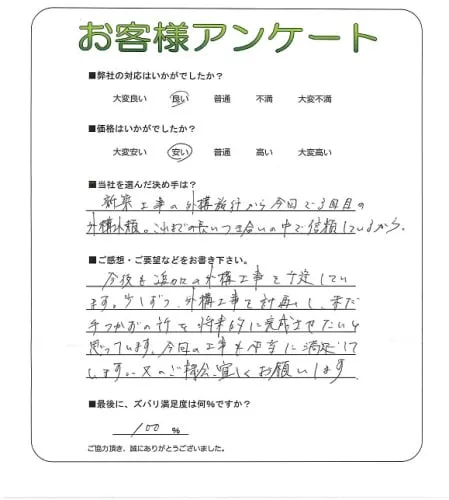 お客様アンケート
■弊社の対応はいかがでしたか？
大変良い 良い 普通 不満 大変不満
■価格はいかがでしたか？
大変安い 安い 普通 高い 大変高い
■当社を選んだ決め手は？
新築工事の外構施行から今回で3回目の
外構依頼。これまでの長いつき合いの中で信頼しているから。
■ご感想・ご要望などをお書き下さい。
今後も追加の外構工事を予定してい
ます。少しずつ、外構工事を計画し、未だ
手つかずの所を将来的に完成させたいと
思っています。今回の工事も非常に満足して
します。又のご機会、宜しくお願いします
■最後に、ズバリ満足度は何％ですか？
100 %
ご協力頂き、誠にありがとうございました。